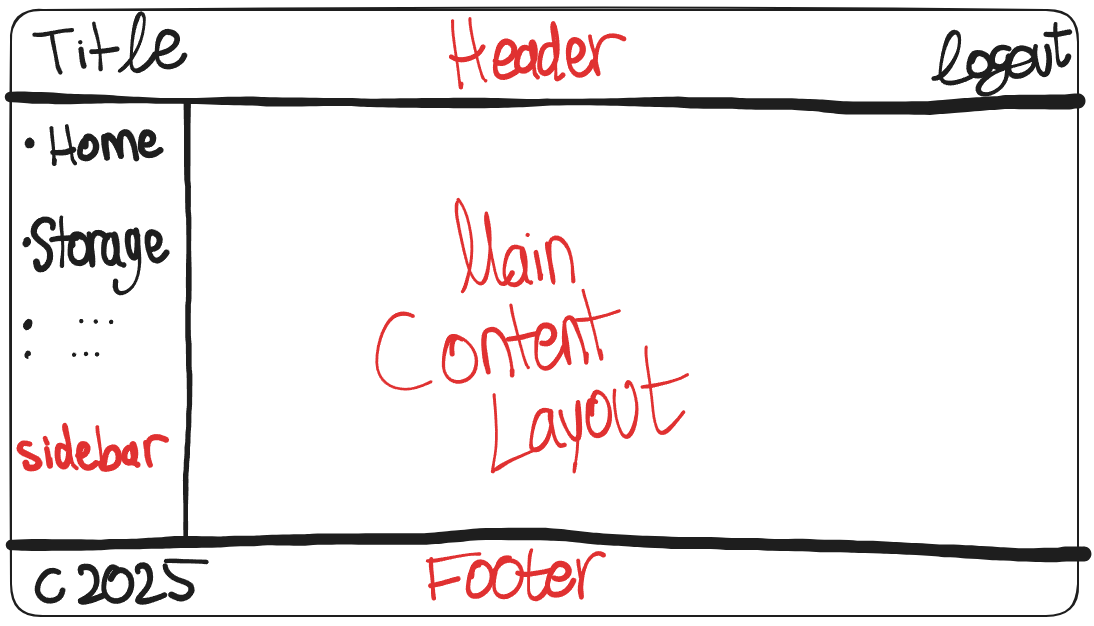 Title Header logout
• Home
• Storage
• ...
• ...
sidebar
Main
Content
Layout
C 2025 Footer